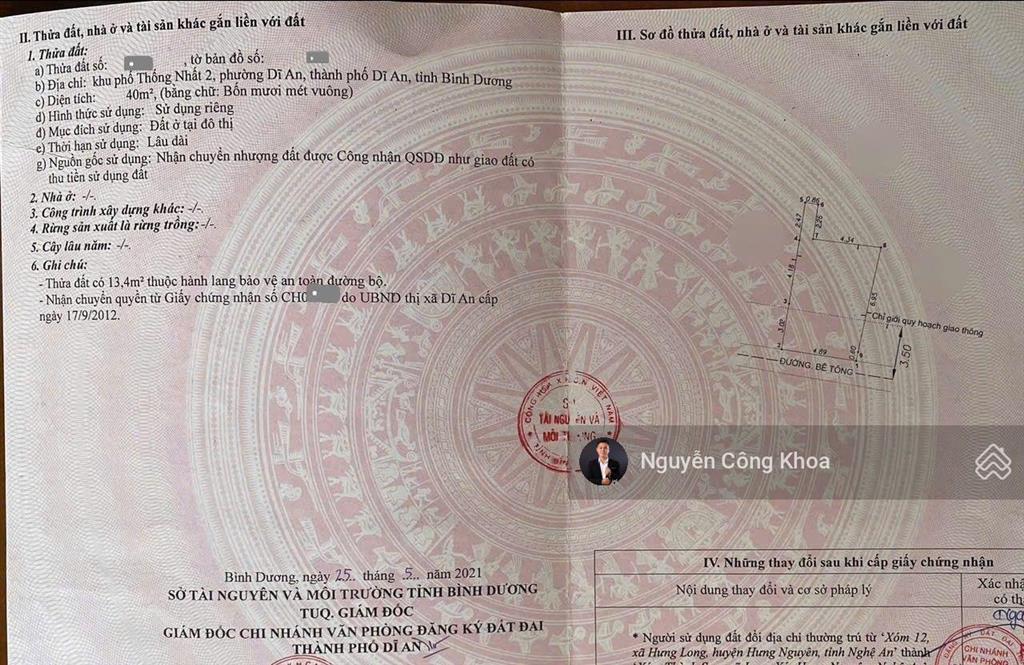 II. Thửa đất, nhà ở và tài sản khác gắn liền với đất
1. Thửa đất:
a) Thửa đất số: , tờ bản đồ số:
b) Địa chỉ: khu phố Thống Nhất 2, phường Dĩ An, thành phố Dĩ An, tỉnh Bình Dương
c) Diện tích: 40m², (bằng chữ: Bốn mươi mét vuông)
d) Hình thức sử dụng: Sử dụng riêng
đ) Mục đích sử dụng: Đất ở tại đô thị
e) Thời hạn sử dụng: Lâu dài
g) Nguồn gốc sử dụng: Nhận chuyển nhượng đất được Công nhận QSDĐ như giao đất có
thu tiền sử dụng đất
2. Nhà ở: -/-.
3. Công trình xây dựng khác: -/-.
4. Rừng sản xuất là rừng trồng: -/-.
5. Cây lâu năm: -/-.
6. Ghi chú:
- Thửa đất có 13,4m² thuộc hành lang bảo vệ an toàn đường bộ.
- Nhận chuyển quyền từ Giấy chứng nhận số CH0 do UBND thị xã Dĩ An cấp
ngày 17/9/2012.
Bình Dương, ngày 25 tháng 5 năm 2021
SỞ TÀI NGUYÊN VÀ MÔI TRƯỜNG TỈNH BÌNH DƯƠNG
TUQ. GIÁM ĐỐC
GIÁM ĐỐC CHI NHÁNH VĂN PHÒNG ĐĂNG KÝ ĐẤT ĐAI
THÀNH PHỐ DĨ AN
III. Sơ đồ thửa đất, nhà ở và tài sản khác gắn liền với đất
5 0.86 6
2.47 2.26
4 7 4.34 8
4.18 6.95
3
Chỉ giới quy hoạch giao thông
3.02 0.60 3.50
2 4.89 9
1
ĐƯỜNG BÊ TÔNG
CỘNG HÒA X.H.C.N VIỆT NAM
SỞ
TÀI NGUYÊN VÀ
MÔI TRƯỜNG
Nguyễn Công Khoa
IV. Những thay đổi sau khi cấp giấy chứng nhận
Nội dung thay đổi và cơ sở pháp lý
Xác nhậ
có th
* Người sử dụng đất đổi địa chỉ thường trú từ 'Xóm 12,
xã Hưng Long, huyện Hưng Nguyên, tỉnh Nghệ An' thành
CHI NHÁNH
VĂN PHÒNG